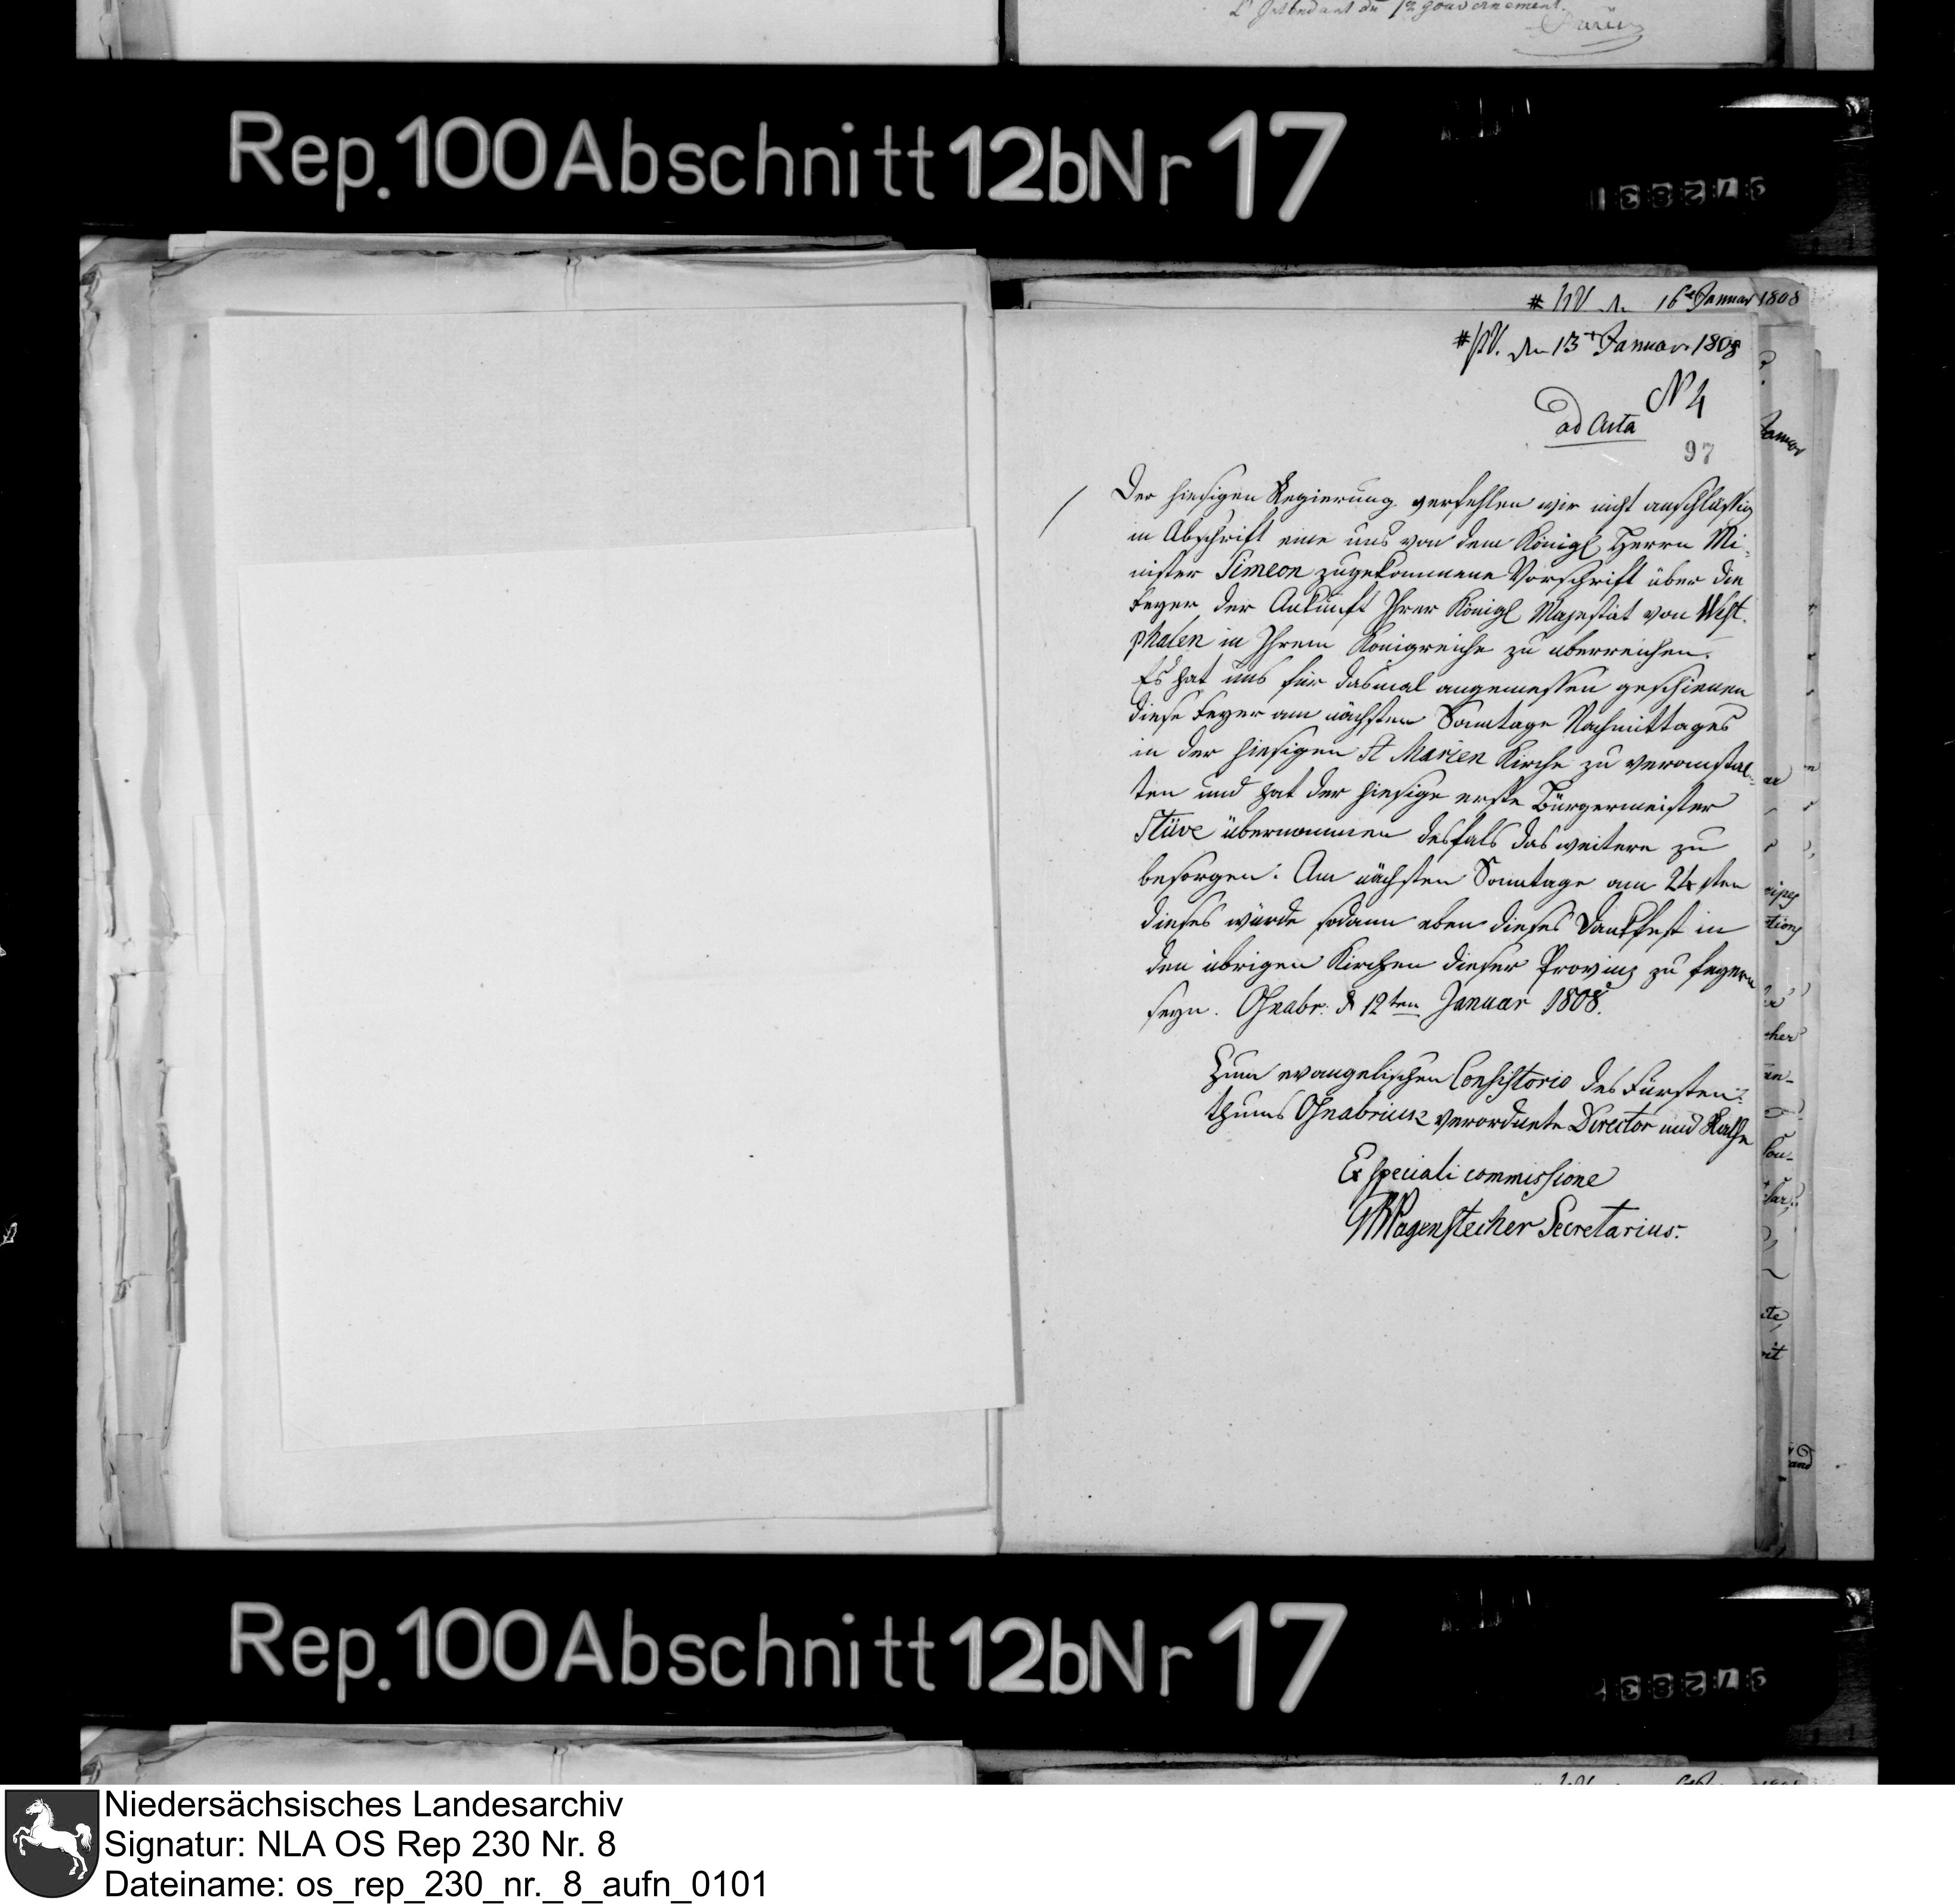 L'Intendant du 1r gouvernement.
Rep. 100 Abschnitt 12b Nr 17
# PV. den 16t Januar 1808
# PV. den 13t Januar 1808
N 4
ad Acta
97
Der hiesigen Regierung verfehlen wir nicht anschlüssig
in Abschrift eine uns von dem Königl Herrn Mi-
nister Simeon zugekommene Vorschrift über die
Feyer der Ankunft Ihrer Königl Majestät von West-
phalen in Ihrem Königreiche zu überreichen.
Es hat uns für dasmal angemessen geschienen
diese Feyer am nächsten Sonntage Nachmittages
in der hiesigen St Marien Kirche zu veranstal-
ten und hat der hiesige erste Bürgermeister
Stüve übernommen desfals das weitere zu
besorgen. Am nächsten Sonntage am 24sten
dieses würde sodann eben dieses Dankfest in
den übrigen Kirchen dieser Provinz zu feyern
seyn. Osnabr: d 12ten Januar 1808.
Zum evangelischen Consistorio des Fürsten-
thums Osnabrück verordnete Director und Räthe
Ex speciali commissione
Pagenstecher Secretarius.
Rep. 100 Abschnitt 12b Nr 17
Niedersächsisches Landesarchiv
Signatur: NLA OS Rep 230 Nr. 8
Dateiname: os_rep_230_nr._8_aufn_0101